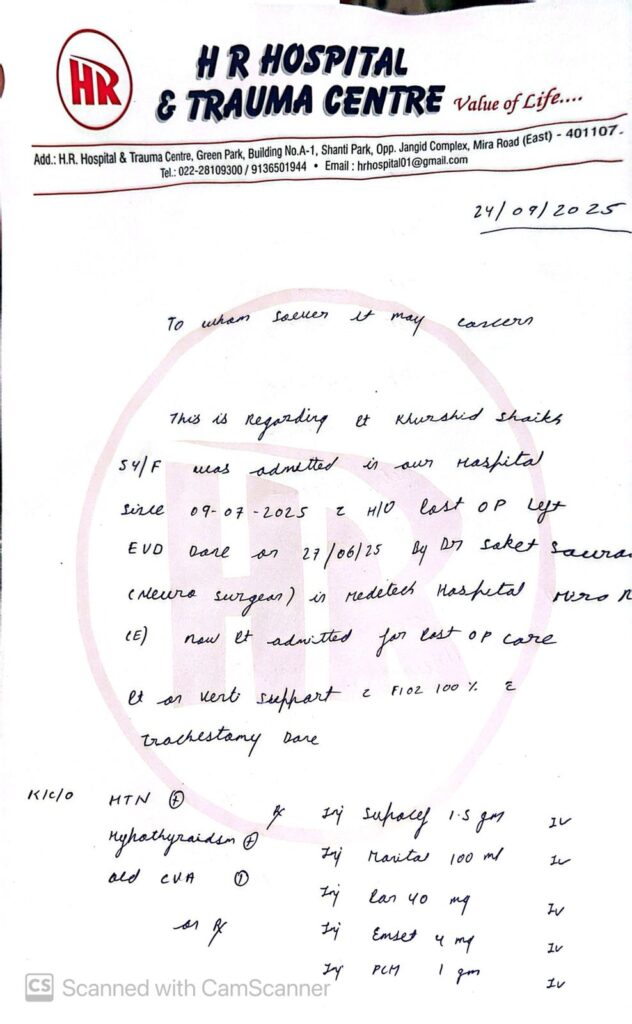 HR
H R HOSPITAL
& TRAUMA CENTRE Value of Life....
Add.: H.R. Hospital & Trauma Centre, Green Park, Building No.A-1, Shanti Park, Opp. Jangid Complex, Mira Road (East) - 401107.
Tel.: 022-28109300 / 9136501944 • Email : hrhospital01@gmail.com
24/09/2025
To whom soever it may concern
This is Regarding Pt Khurshid Shaikh
54/F was admitted in our Hospital
since 09-07-2025 c H/O Post OP Left
EVD Done on 27/06/25 By Dr Saket
(Neuro surgeon) in Medetech Hospital Mira R
(E) now Pt admitted for Post OP care
Pt on Vent support c FiO2 100 % c
Trachestomy Done
K/C/O HTN + Rx Inj Supacef 1.5 gm IV
Hypothyroidsm + Inj Manitol 100 ml IV
old CVA + Inj Pan 40 mg IV
on Rx Inj Emset 4 mg IV
Inj PCM 1 gm IV
CS Scanned with CamScanner